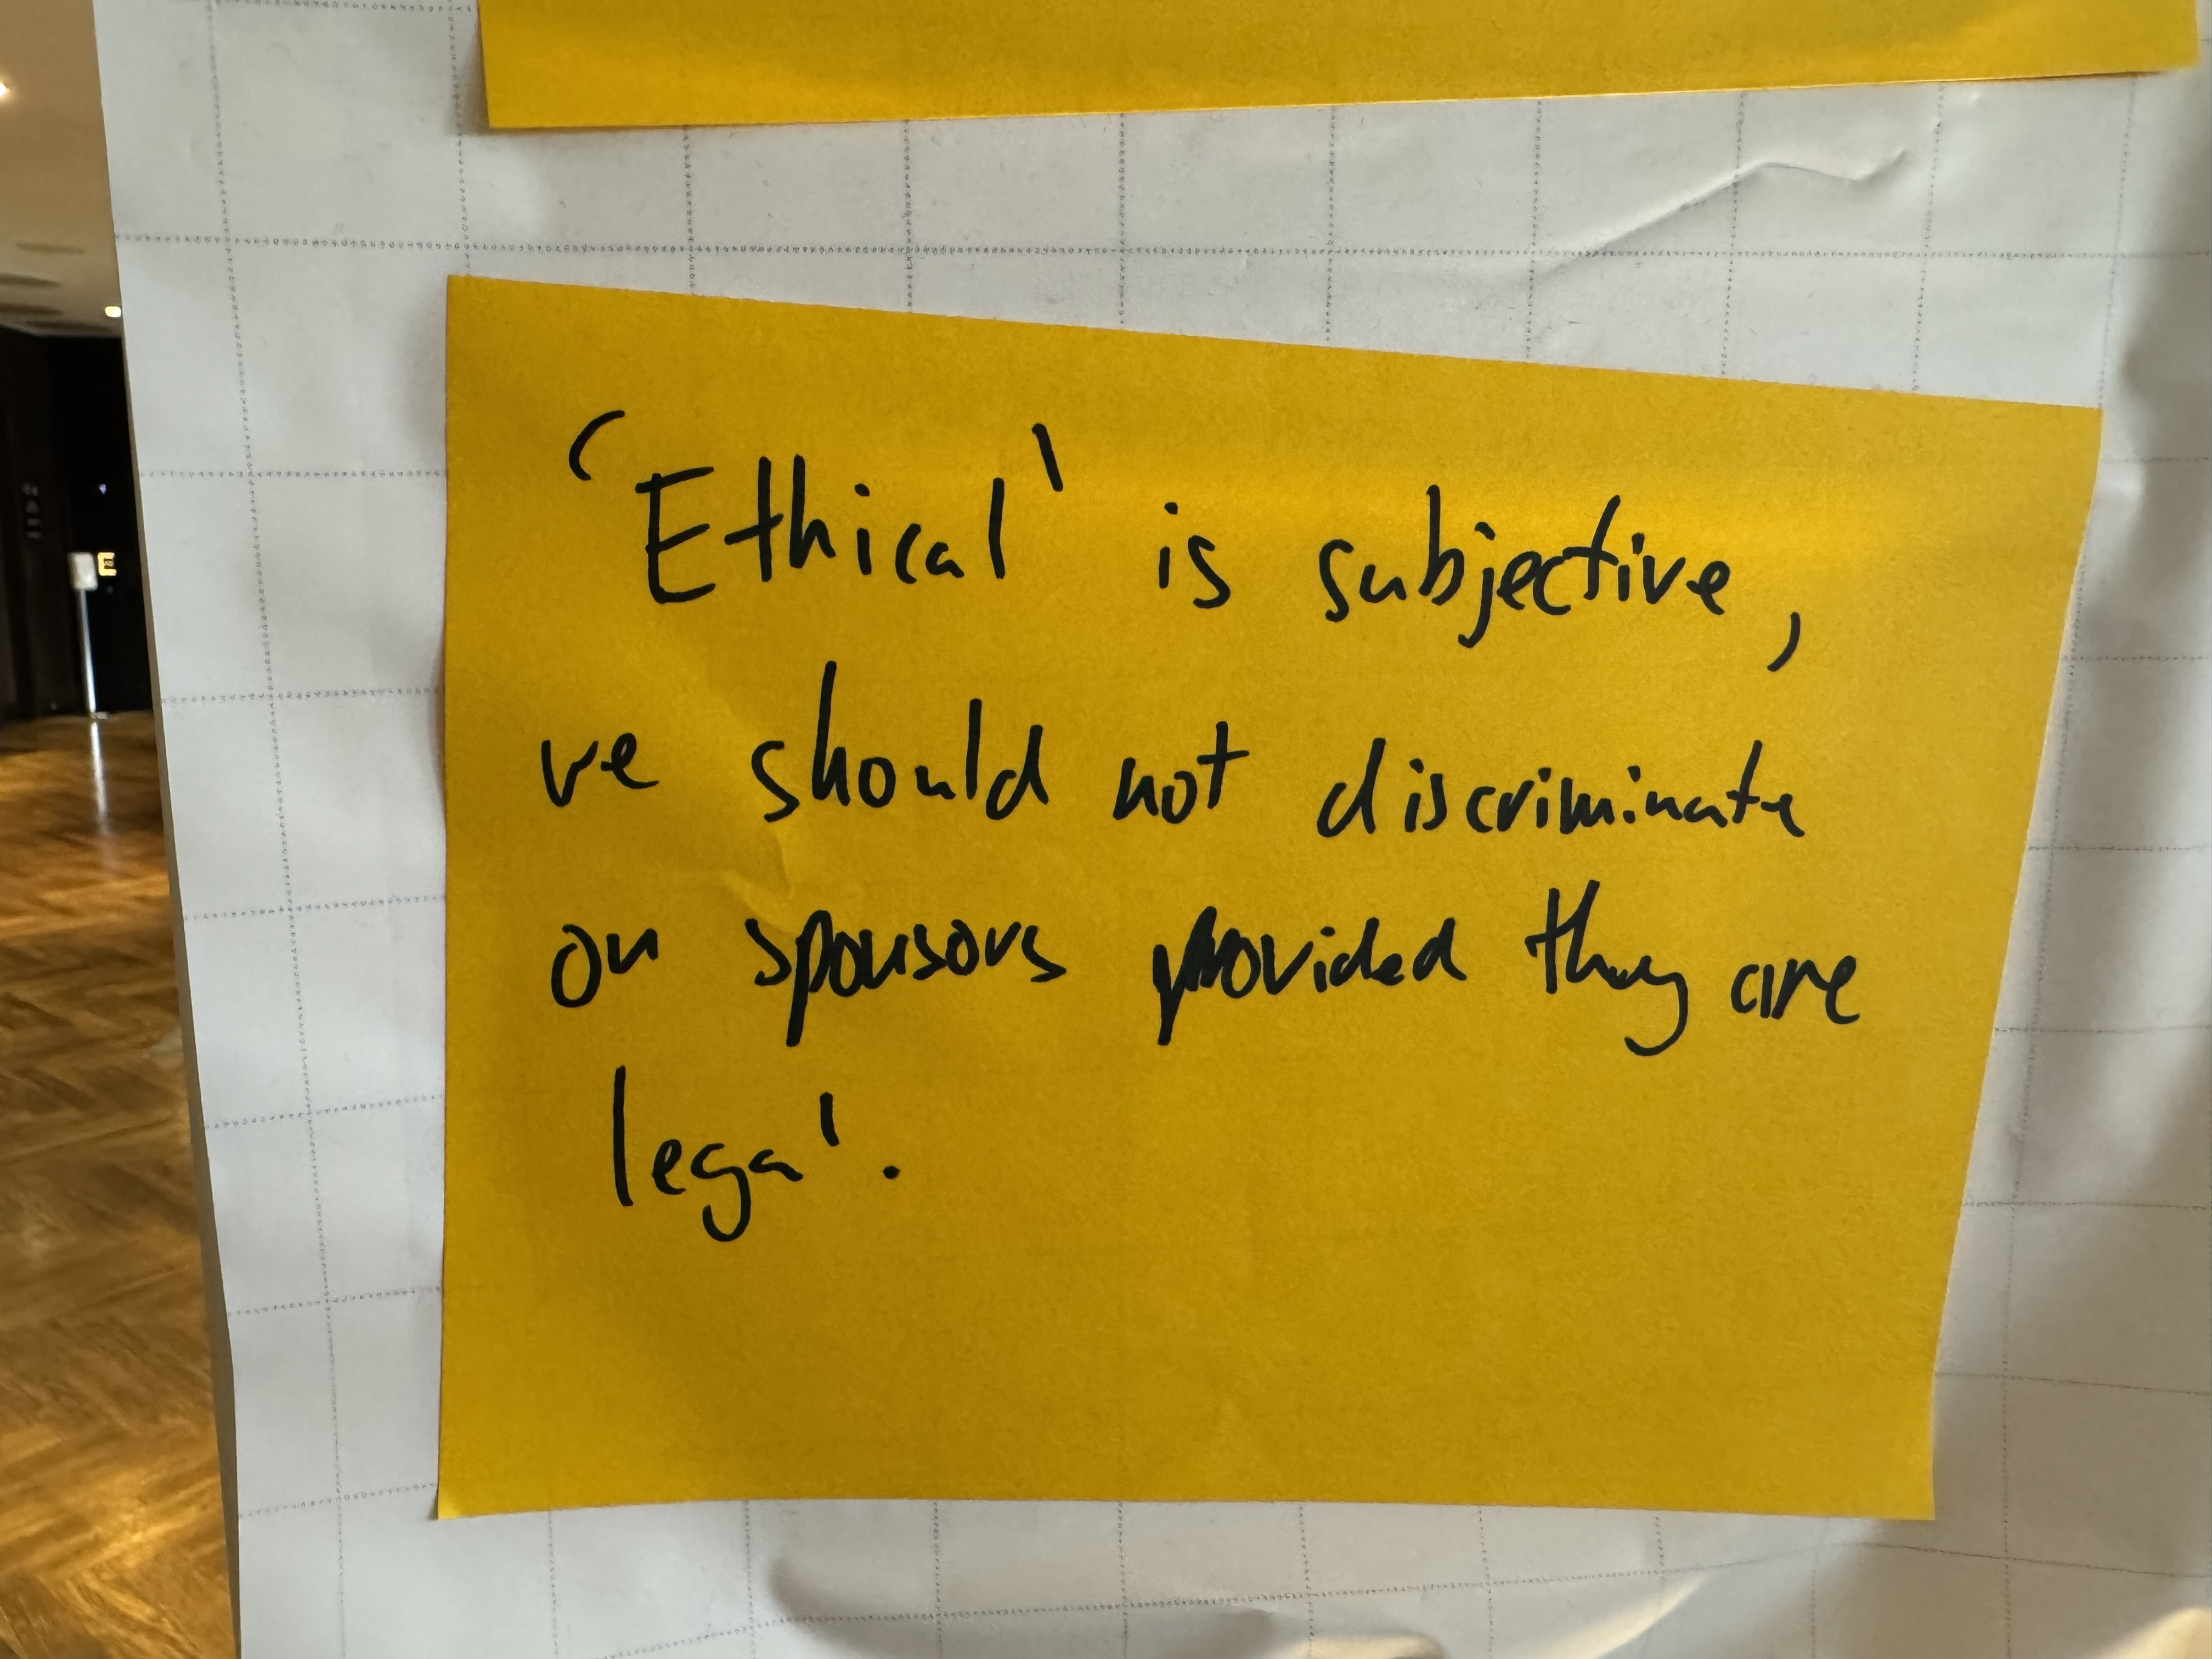 'Ethical' is subjective,
we should not discriminate
on sponsors provided they are
legal.